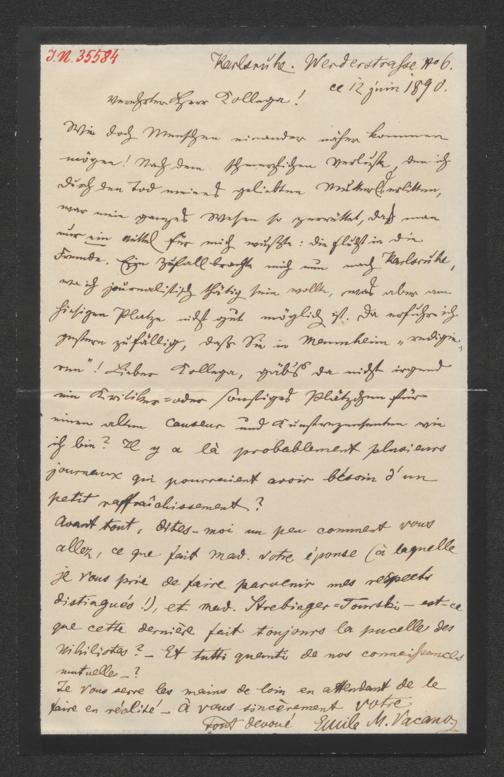 J.N. 35584
Karlsruhe. Werderstrasse No 6.
ce 12 juin 1890.
Verehrtester Herr Kollega!
Wie doch Menschen einander näher kommen
mögen! Nach dem schmerzlichen Verluste, den ich
durch den Tod meines geliebten Mutterl erlitten,
war mein ganzes Wesen so zerrüttet, daß man
nur ein Mittel für mich wußte: die Flucht in die
Fremde. Ein Zufall brachte mich nun nach Karlsruhe,
wo ich journalistisch thätig sein wollte, was aber am
hiesigen Platze nicht gut möglich ist. Da erfuhr ich
gestern zufällig, daß Sie in Mannheim „redigie-
ren"! Lieber Kollega, gäb's da nicht irgend
ein Kritiker- oder sonstiges Plätzchen für
einen alten Causeur und Kunstreferenten wie
ich bin? Il y a là probablement plusieurs
journaux qui pourraient avoir bésoin d'un
petit raffraîchissement?
Avant tout, dites-moi un peu comment vous
allez, ce que fait mad. votre épouse (à laquelle
je vous prie de faire parvenir mes respects
distingués!), et mad. Strebinger-Tourski – est-ce
que cette dernière fait toujours la pucelle des
Nihilistes? – Et tutti quanti de nos connaissances
mutuelles –?
Je vous serre les mains de loin en attendant de le
faire en réalité – À vous sincèrement votre
Tout devoué Emile M. Vacano